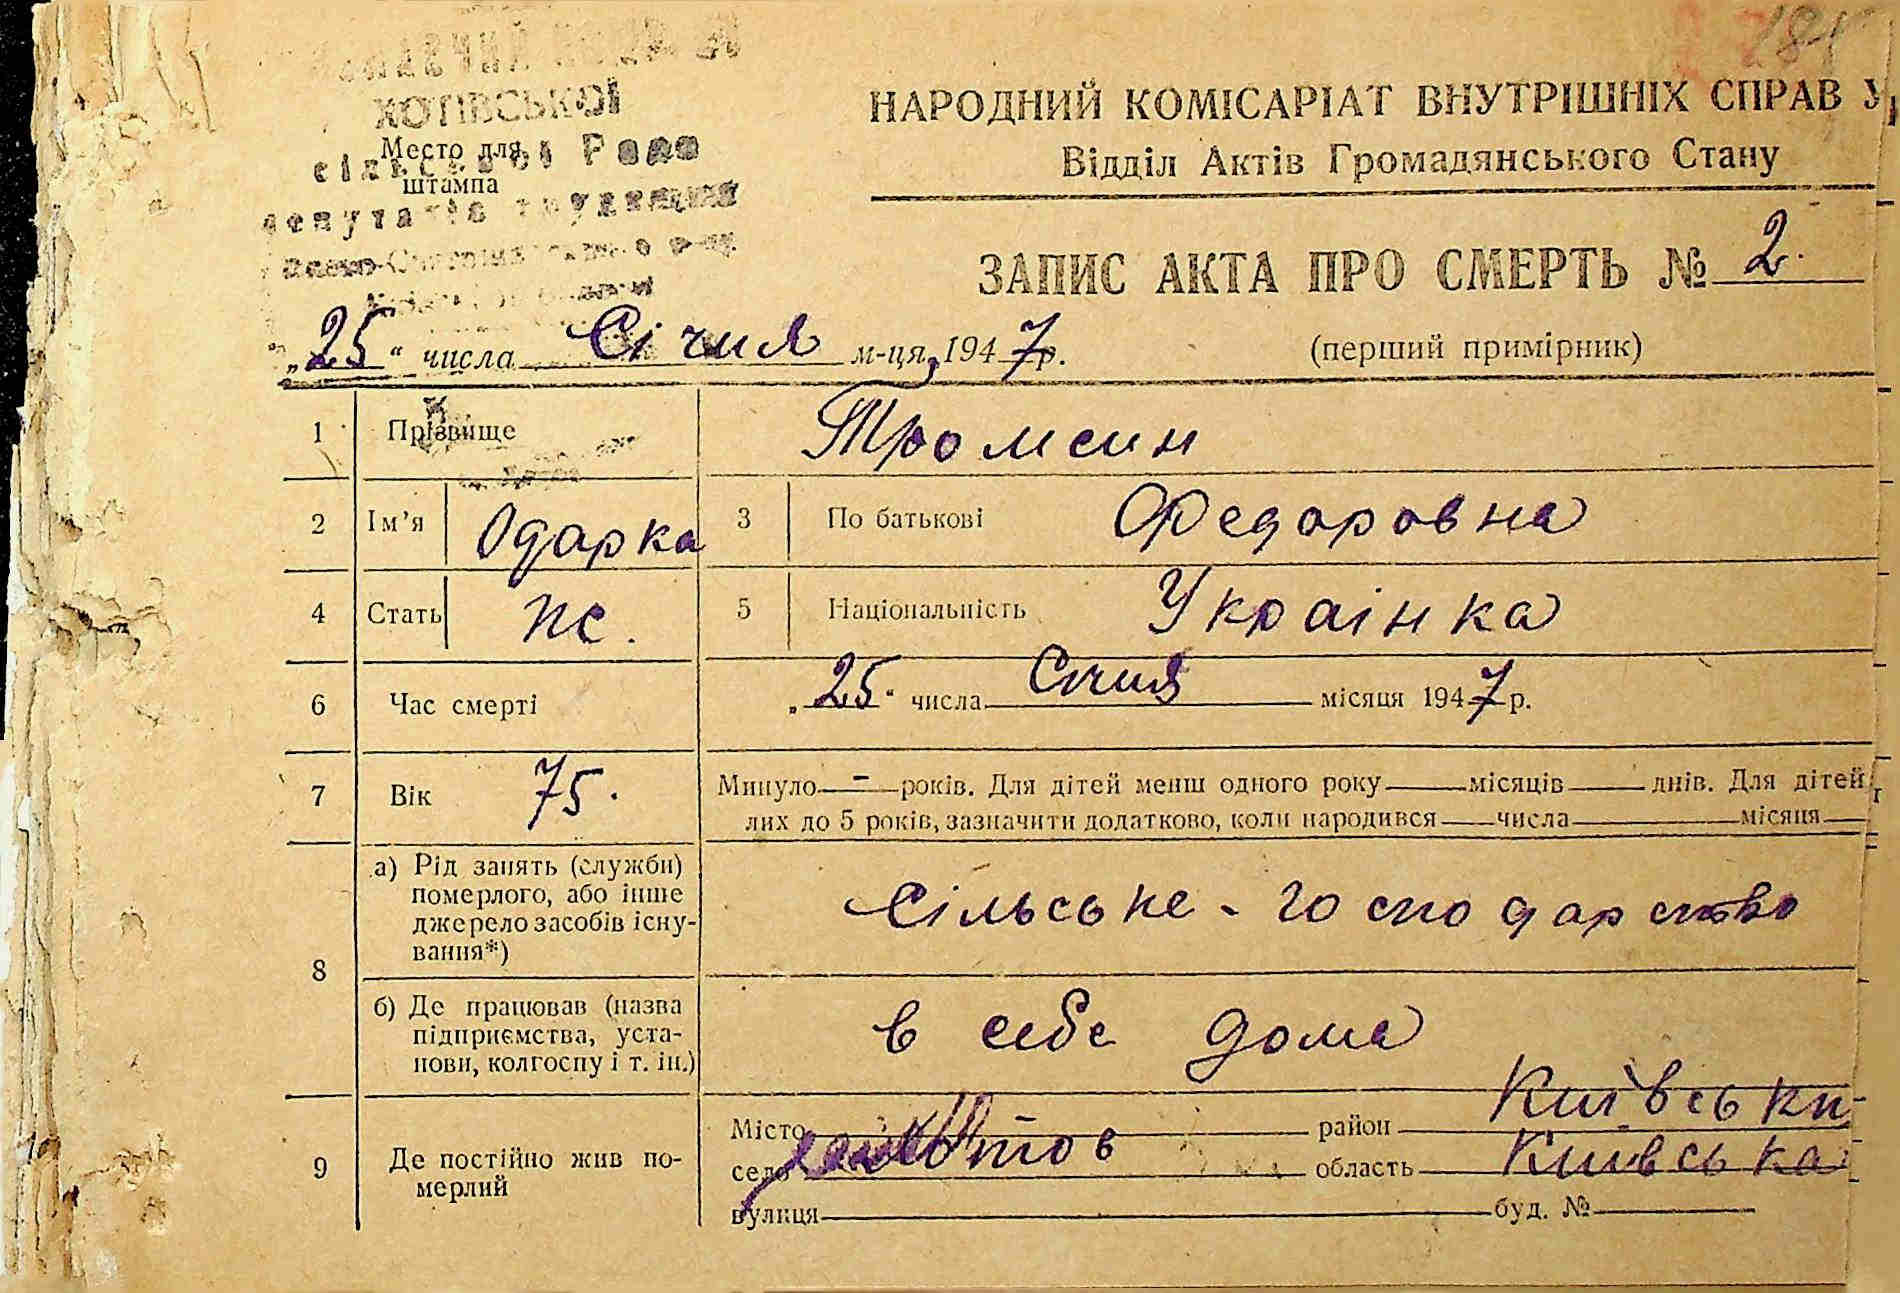 181
ХОТІВСЬКОЇ
Место для
штампа
сільської Ради
депутатів трудящих
НАРОДНИЙ КОМІСАРІАТ ВНУТРІШНІХ СПРАВ У
Відділ Актів Громадянського Стану
ЗАПИС АКТА ПРО СМЕРТЬ № 2.
„25“ числа Січня м-ця, 1947р.
(перший примірник)
1 Прізвище Тромсин
2 Ім’я Одарка 3 По батькові Федаровна
4 Стать же. 5 Національність Украінка
6 Час смерті „25“ числа Січня місяця 1947р.
7 Вік 75. Минуло — - — років. Для дітей менш одного року — місяців — днів. Для дітей
лих до 5 років, зазначити додатково, коли народився — числа — місяця —
8 а) Рід занять (служби)
померлого, або інше
джерело засобів існу-
вання*)
Сільське - господарство
б) Де працював (назва
підприємства, уста-
нови, колгоспу і т. ін.)
в себе дома
9 Де постійно жив по-
мерлий
Місто район Київськи
село Хотов область Київська
вулиця буд. №